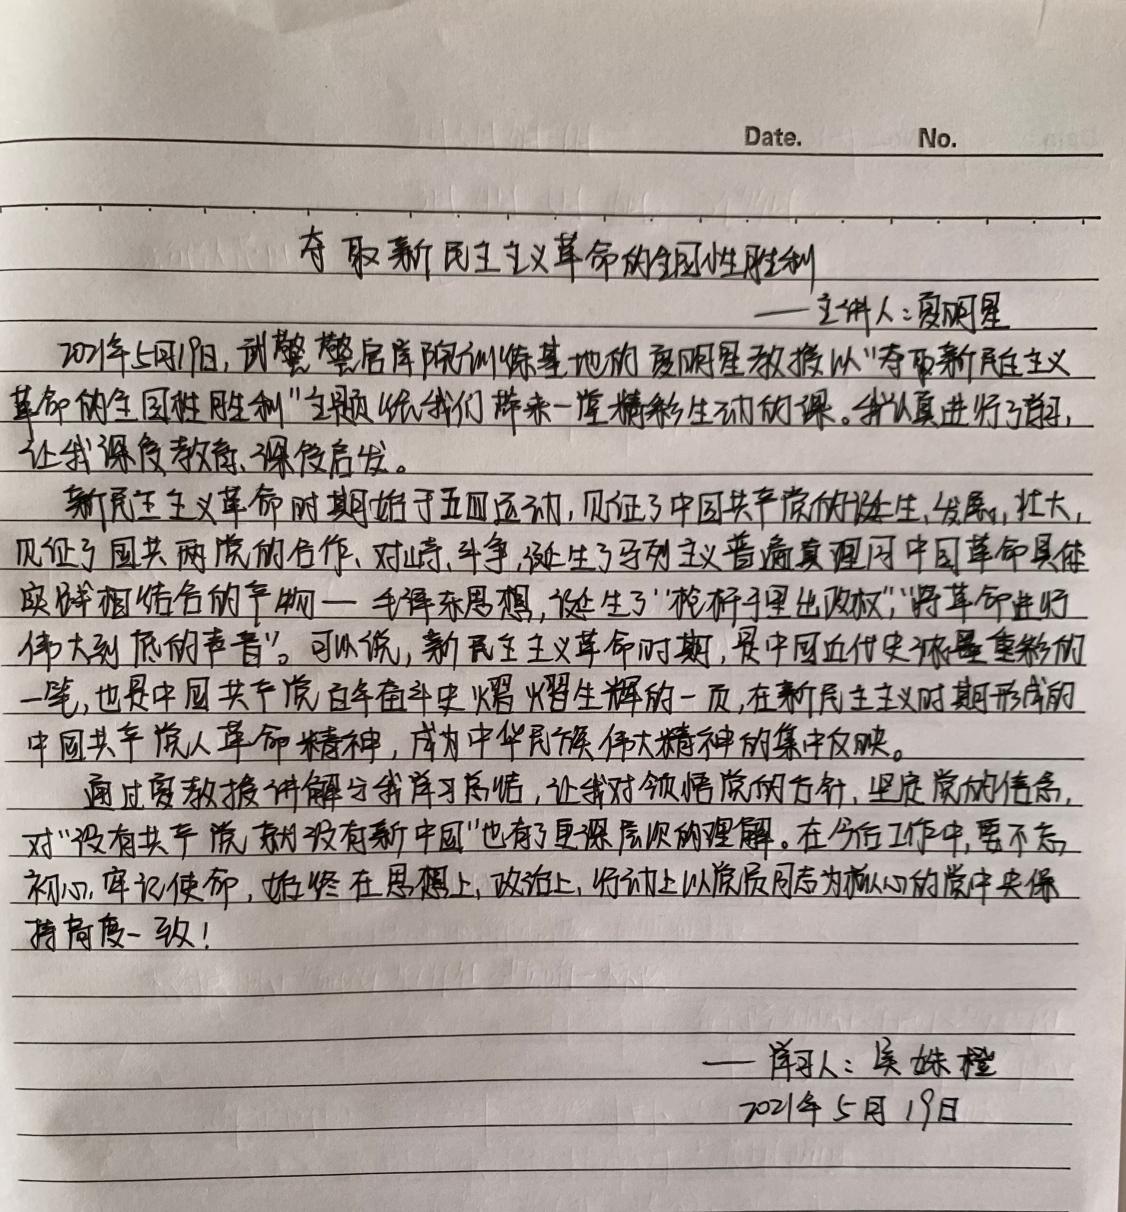 Date. No.
夺取新民主主义革命的全国性胜利
——主讲人：夏明星
2021年5月19日，武警警官学院训练基地的夏明星教授以“夺取新民主主义
革命的全国性胜利”主题给我们带来一堂精彩生动的课。我认真进行了学习，
让我深受教育、深受启发。
新民主主义革命时期始于五四运动，见证了中国共产党的诞生、发展、壮大，
见证了国共两党的合作、对峙、斗争，诞生了马列主义普遍真理同中国革命具体
实践相结合的产物—毛泽东思想，诞生了“枪杆子里出政权”，“将革命进行
伟大到底的声音”。可以说，新民主主义革命时期，是中国近代史浓墨重彩的
一笔，也是中国共产党百年奋斗史熠熠生辉的一页，在新民主主义时期形成的
中国共产党人革命精神，成为中华民族伟大精神的集中反映。
通过夏教授讲解与我学习总结，让我对领悟党的方针、坚定党的信念，
对“没有共产党就没有新中国”也有了更深层次的理解。在今后工作中，要不忘
初心、牢记使命，始终在思想上、政治上、行动上以党员同志为核心的党中央保
持高度一致！
——学习人：侯姝橙
2021年5月19日